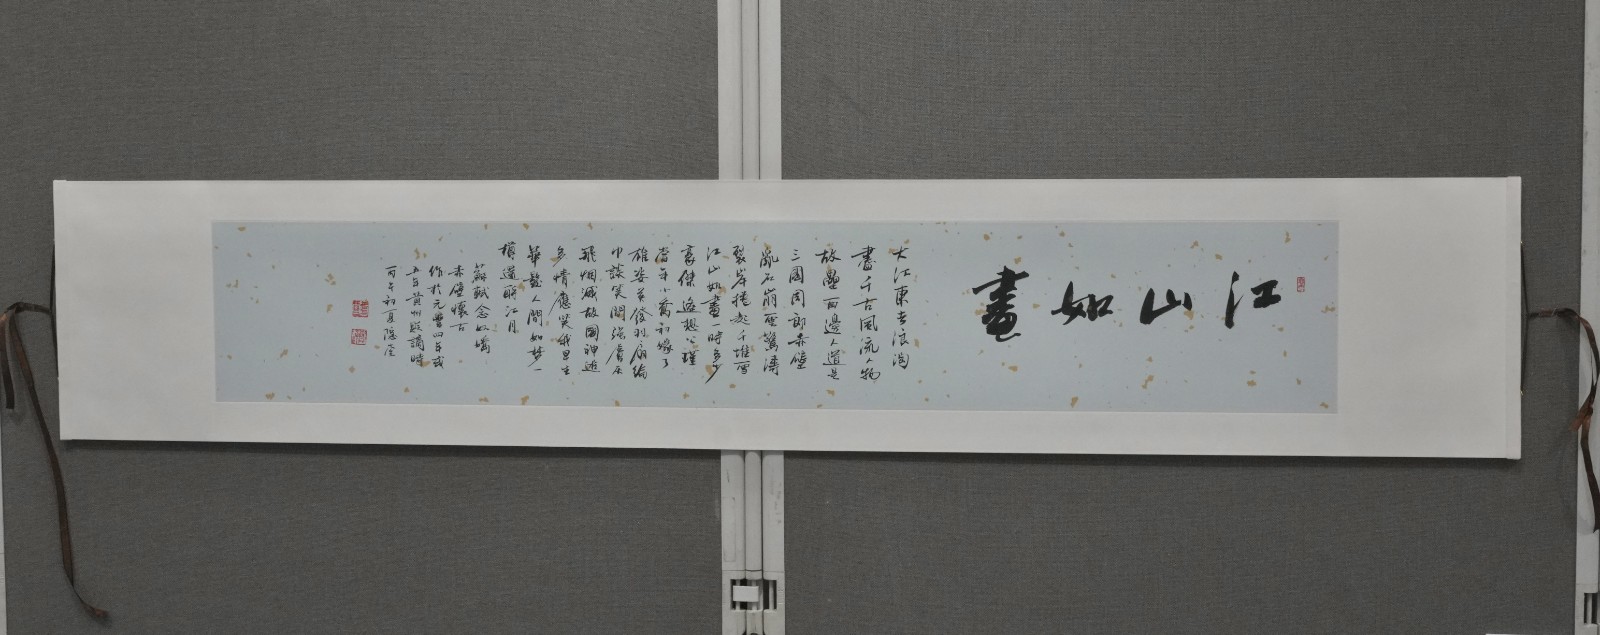 江山如畫
大江東去浪淘
盡千古風流人物
故壘西邊人道是
三國周郎赤壁
亂石崩雲驚濤
裂岸捲起千堆雪
江山如畫一時多少
豪傑遙想公瑾
當年小喬初嫁了
雄姿英發羽扇綸
巾談笑間強虜灰
飛烟滅故國神遊
多情應笑我早生
華髮人間如夢一
樽還酹江月
蘇軾念奴嬌
赤壁懷古
作於元豐四年或
五年黃州貶謫時
初夏